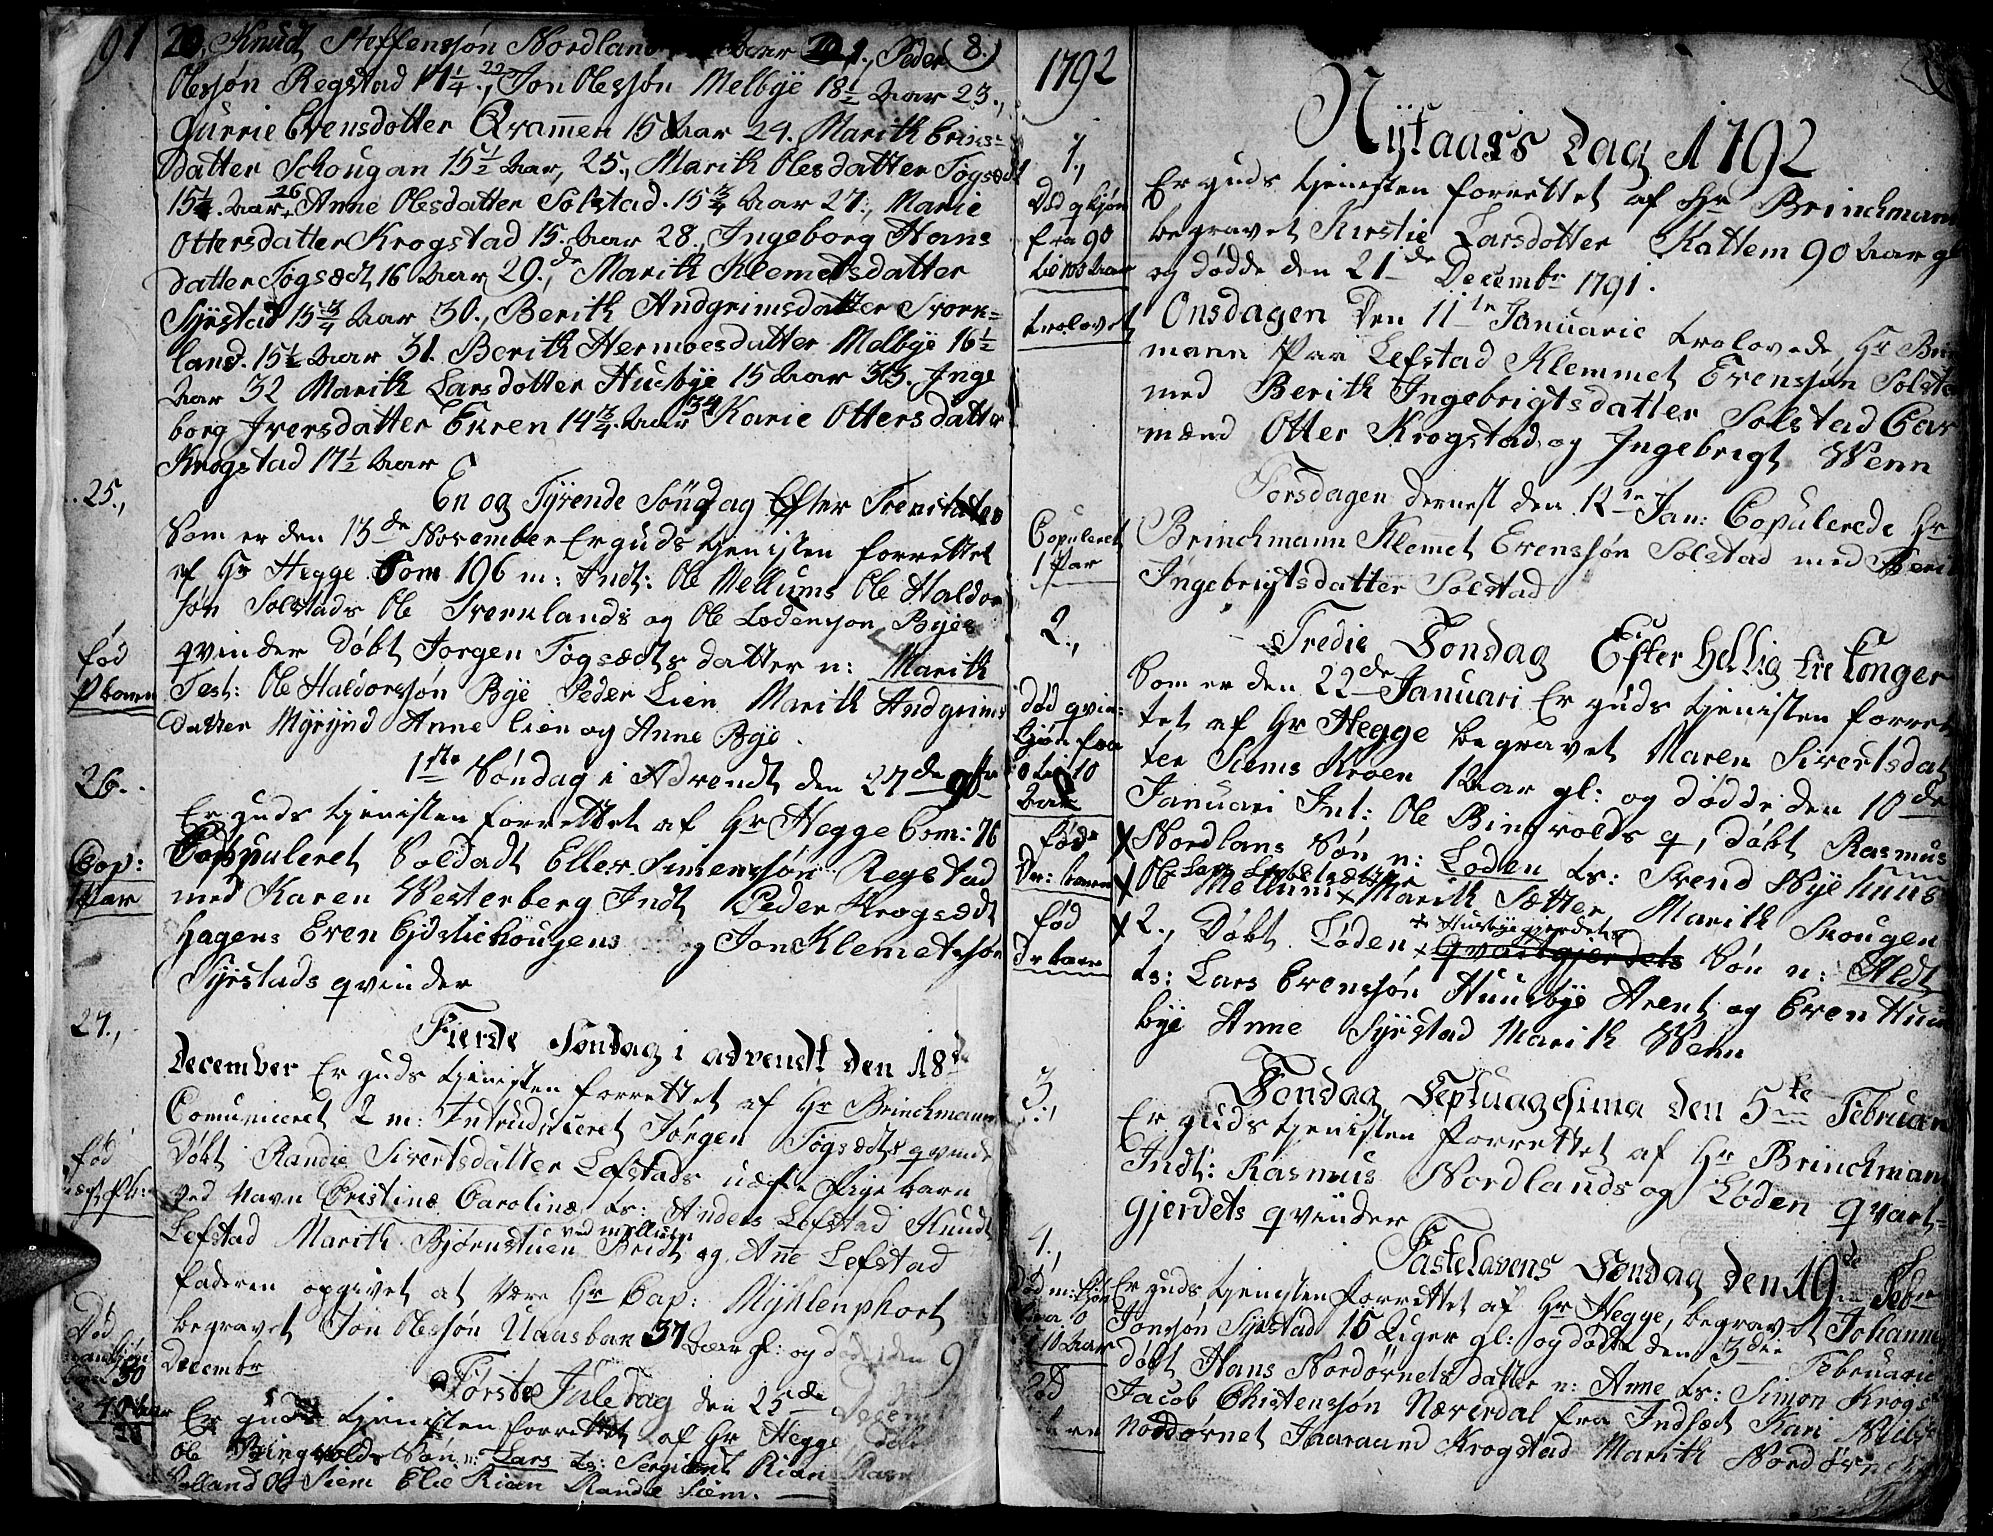 91
20, Knud Steffenssøn Nordland Aar 21., Peder (8.)
Olessøn Regstad 17 1/4., 22 Jon Olessøn Melbye 18 1/2 Aar 23.,
Gurrie Evensdotter Qrammen 15 Aar 24. Marith Erics=
datter Schougan 15 1/2 Aar, 25., Marith Olesdatter Togsædt
15 1/4. Aar 26 Anne Olesdatter Solstad. 15 3/4 Aar 27., Marie
Ottersdatter Krogstad 15. Aar 28., Ingeborg Hans
datter Togsædt 16 Aar 29., Marith Klemetsdatter
Syrstad 15 3/4 Aar 30., Berith Andgrimsdatter Svork=
land. 15 1/2 Aar 31. Berith Hermoesdatter Melbye 16 1/2
Aar 32 Marith Larsdotter Husbye 15 Aar 33. Inge
borg Iversdatter Euren 14 3/4. Aar 34 Karie Ottersdatter
Krogstad 17 1/2 Aar
25.,
En og Tyvende Søndag Efter Trenitates
Som er den 13de November Er guds tjenisten forrettet
af Hr Hegge Com 196 m: Indt: Ole Mellums Ole Haldor
søn Solstads Ole Svernlands og Ole Lodenson Byes
qvinder døbt Jorgen Togsædts datter n: Marith
fød
P barn
Test: Ole Haldorssøn Bye Peder Lien Marith Andgrims
datter Myrynd Anne Lien og Anne Bye.
26.
1ste Søndag i Advendt den 27de 9br
Er guds tjenisten forrettet af Hr Hegge Com: 76
Cop:
1 Par
Coppuleret Soldadt Eller Simenssøn Regstad
med Karen Westerberg Indt Peder Krogsædt
hagens Even Eidslichougens og Jon Klemetssøn
Syrstads qvinder
27.,
Fierde Søndag i advendt den 18de
December Er guds tjenisten forrettet af Hr Brinchmann
Comuniceret 2 m: Intruduceret Jørgen Togsædts qvinde
fød
Døbt Randie Sivertsdatter Lefstads uægte Pige barn
ved Navn Cristinæ Carolinæ ts: Anders Lefstad Knud
Lefstad Marith Bjørnstuen Bridt ved mellum og Anne Lefstad
faderen opgivet at være Hr Cap: Myhlenphort
Død
begravet Jon Olessøn Uaasbak 37 Aar gl: og døde den 9
Decembr
30
40 Aar
Første Jule dag den 25de Decem
Er guds tjenisten forrettet af Hr Hegge døbt
Ole Bingvolds Søn n: Lars ts: Sergiant Rian Rasm
Solland Ole Siem Elie Rian Randie Siem.
1792
Nytaars dag A 1792
1.,
Død qkjøn
fra 90
til 100 Aar
Er guds tjenisten forrettet af Hr Brinchmann
begravet Kirstie Larsdotter Kattem 90 Aar gl
og døde den 21de Decembr 1791.
trolovet
Onsdagen den 11te Januarie trolovede Hr Brinch
mann Par Lefstad Klemmet Evenssøn Solsta
med Berith Ingebrigtsdatter Solstad Cav
mænd Otter Krogstad og Ingebrigt Wenn
Copuleret
1 Par
Torsdagen dernest den 12te Jan: Copulerede Hr
Brinchmann Klemet Evenssøn Solstad med Berit
Ingebrigtsdatter Solstad
2.,
Tredie Søndag Efter Hellig tre konger
Som er den 22de Januari Er guds tjenisten forret
død qvin:
kjøn fra
0 til 10
Aar
tet af Hr Hegge begravet Maren Sivertsdat
ter Siems Kroen 1 Aar gl: og dødde den 10de
Januari Int: Ole Bingvolds q, døbt Rasmus
føde
Dr: barn
X Nordlans Søn n: Loden ts: Svend Nyehuus
X Ole Mellum x Marith Sætter, Marith Skougen
fød
Dr barn
X 2., Døbt Løden x Husbygjerdets x Qvartgjerdets Søn n: Aldt
ts: Lars Evenssøn Huusbye Arent og Even Huus
bye Anne Syrstad Marith Wenn
3.,
Søndag Septuagesima den 5te Februari
Er guds tjenisten forrettet af Hr Brinchman
Indt: Rasmus Nordlands og Løden Qvart=
gjerdets qvinder
4.,
Fastelavens Søndag den 19de Febr
Død m: kjøn
fra 0
10 Aar
Er guds tjenisten forrettet af Hr Hegge, begravet Johannes
Jonssøn Syrstad 15 Uger gl: og dødte den 3die Februarii
fød
døbt Hans Nordørnets datter n: Anne ts: Simon Krogst
Jacob Christenssøn Næverdal fra Indsædt Kari Melbye
Norddørnet Jaaraand Krogstad Marith Nordørnet